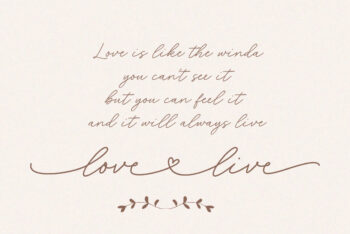 Love is like the winda
you can't see it
but you can feel it
and it will always live
love live